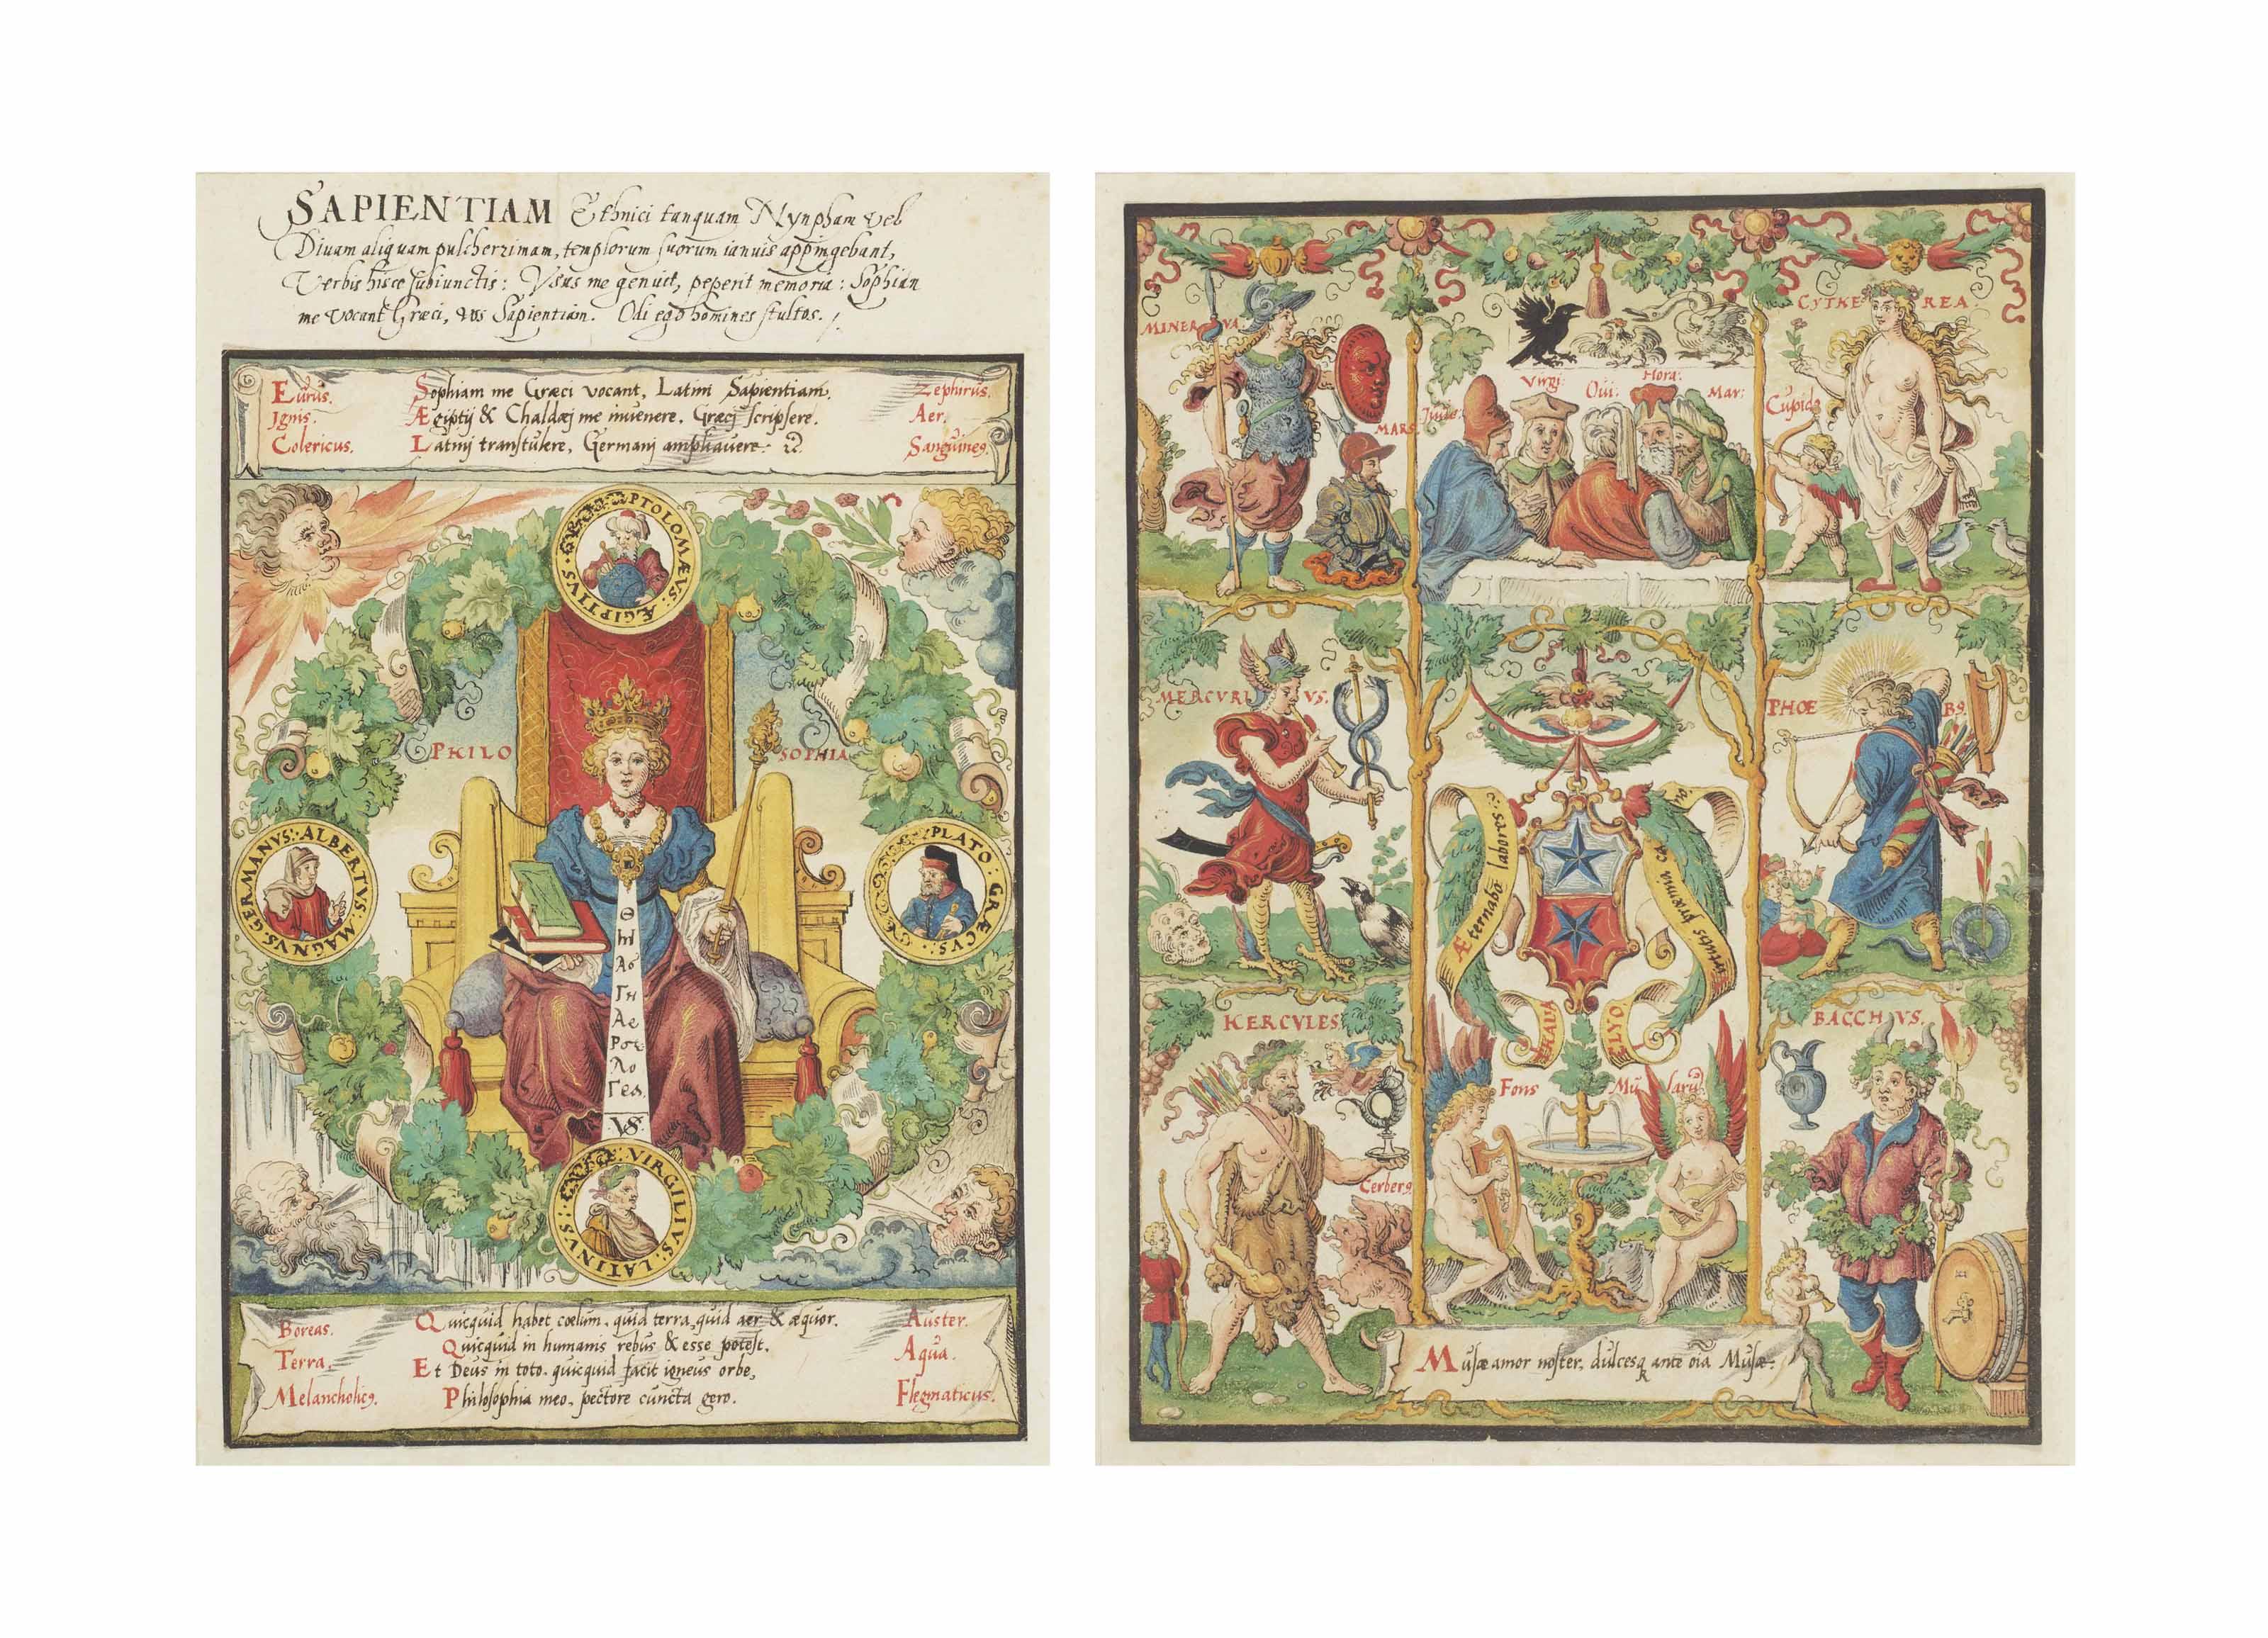 SAPIENTIAM Ethnici tanquam Nynpham vel
Diuam aliquam pulcherrimam, templorum suorum ianuis appingebant,
Verbis hisce subiunctis: Vsus me genuit, peperit memoria: Sophian
me vocant Græci, vos Sapientiam. Odi ego homines stultos.
Eurus. Sophiam me Græci vocant, Latini Sapientiam. Zephirus.
Ignis. Ægiptij & Chaldæj me inuenere. Græcj scripsere. Aer.
Colericus. Latinj transtulere, Germanj ampliauere. Sanguine9.
PTOLOMÆVS: ÆGIPTIVS
PHILO SOPHIA
GERMANVS: ALBERTVS: MAGNVS:
PLATO: GRÆCVS:
VIRGILIVS: LATINVS:
Boreas. Quicquid habet cœlum, quid terra, quid aer & æquor. Auster.
Quicquid in humanis rebus & esse potest.
Terra. Et Deus in toto, quicquid facit igneus orbe, Aqua.
Melancholic9. Philosophia meo, pectore cuncta gero. Flegmaticus.
MINERVA.
MARS.
Virgi:
Oui:
Hora:
Mar:
CYTHEREA.
Cupido
MERCVRIVS.
Æternabo labores:
virtutis præmia
PHOEB9.
HERCVLES
Cerber9
Fons Musaru
BACCHVS.
Musæ amor noster, dulcesq ante oia Musæ.